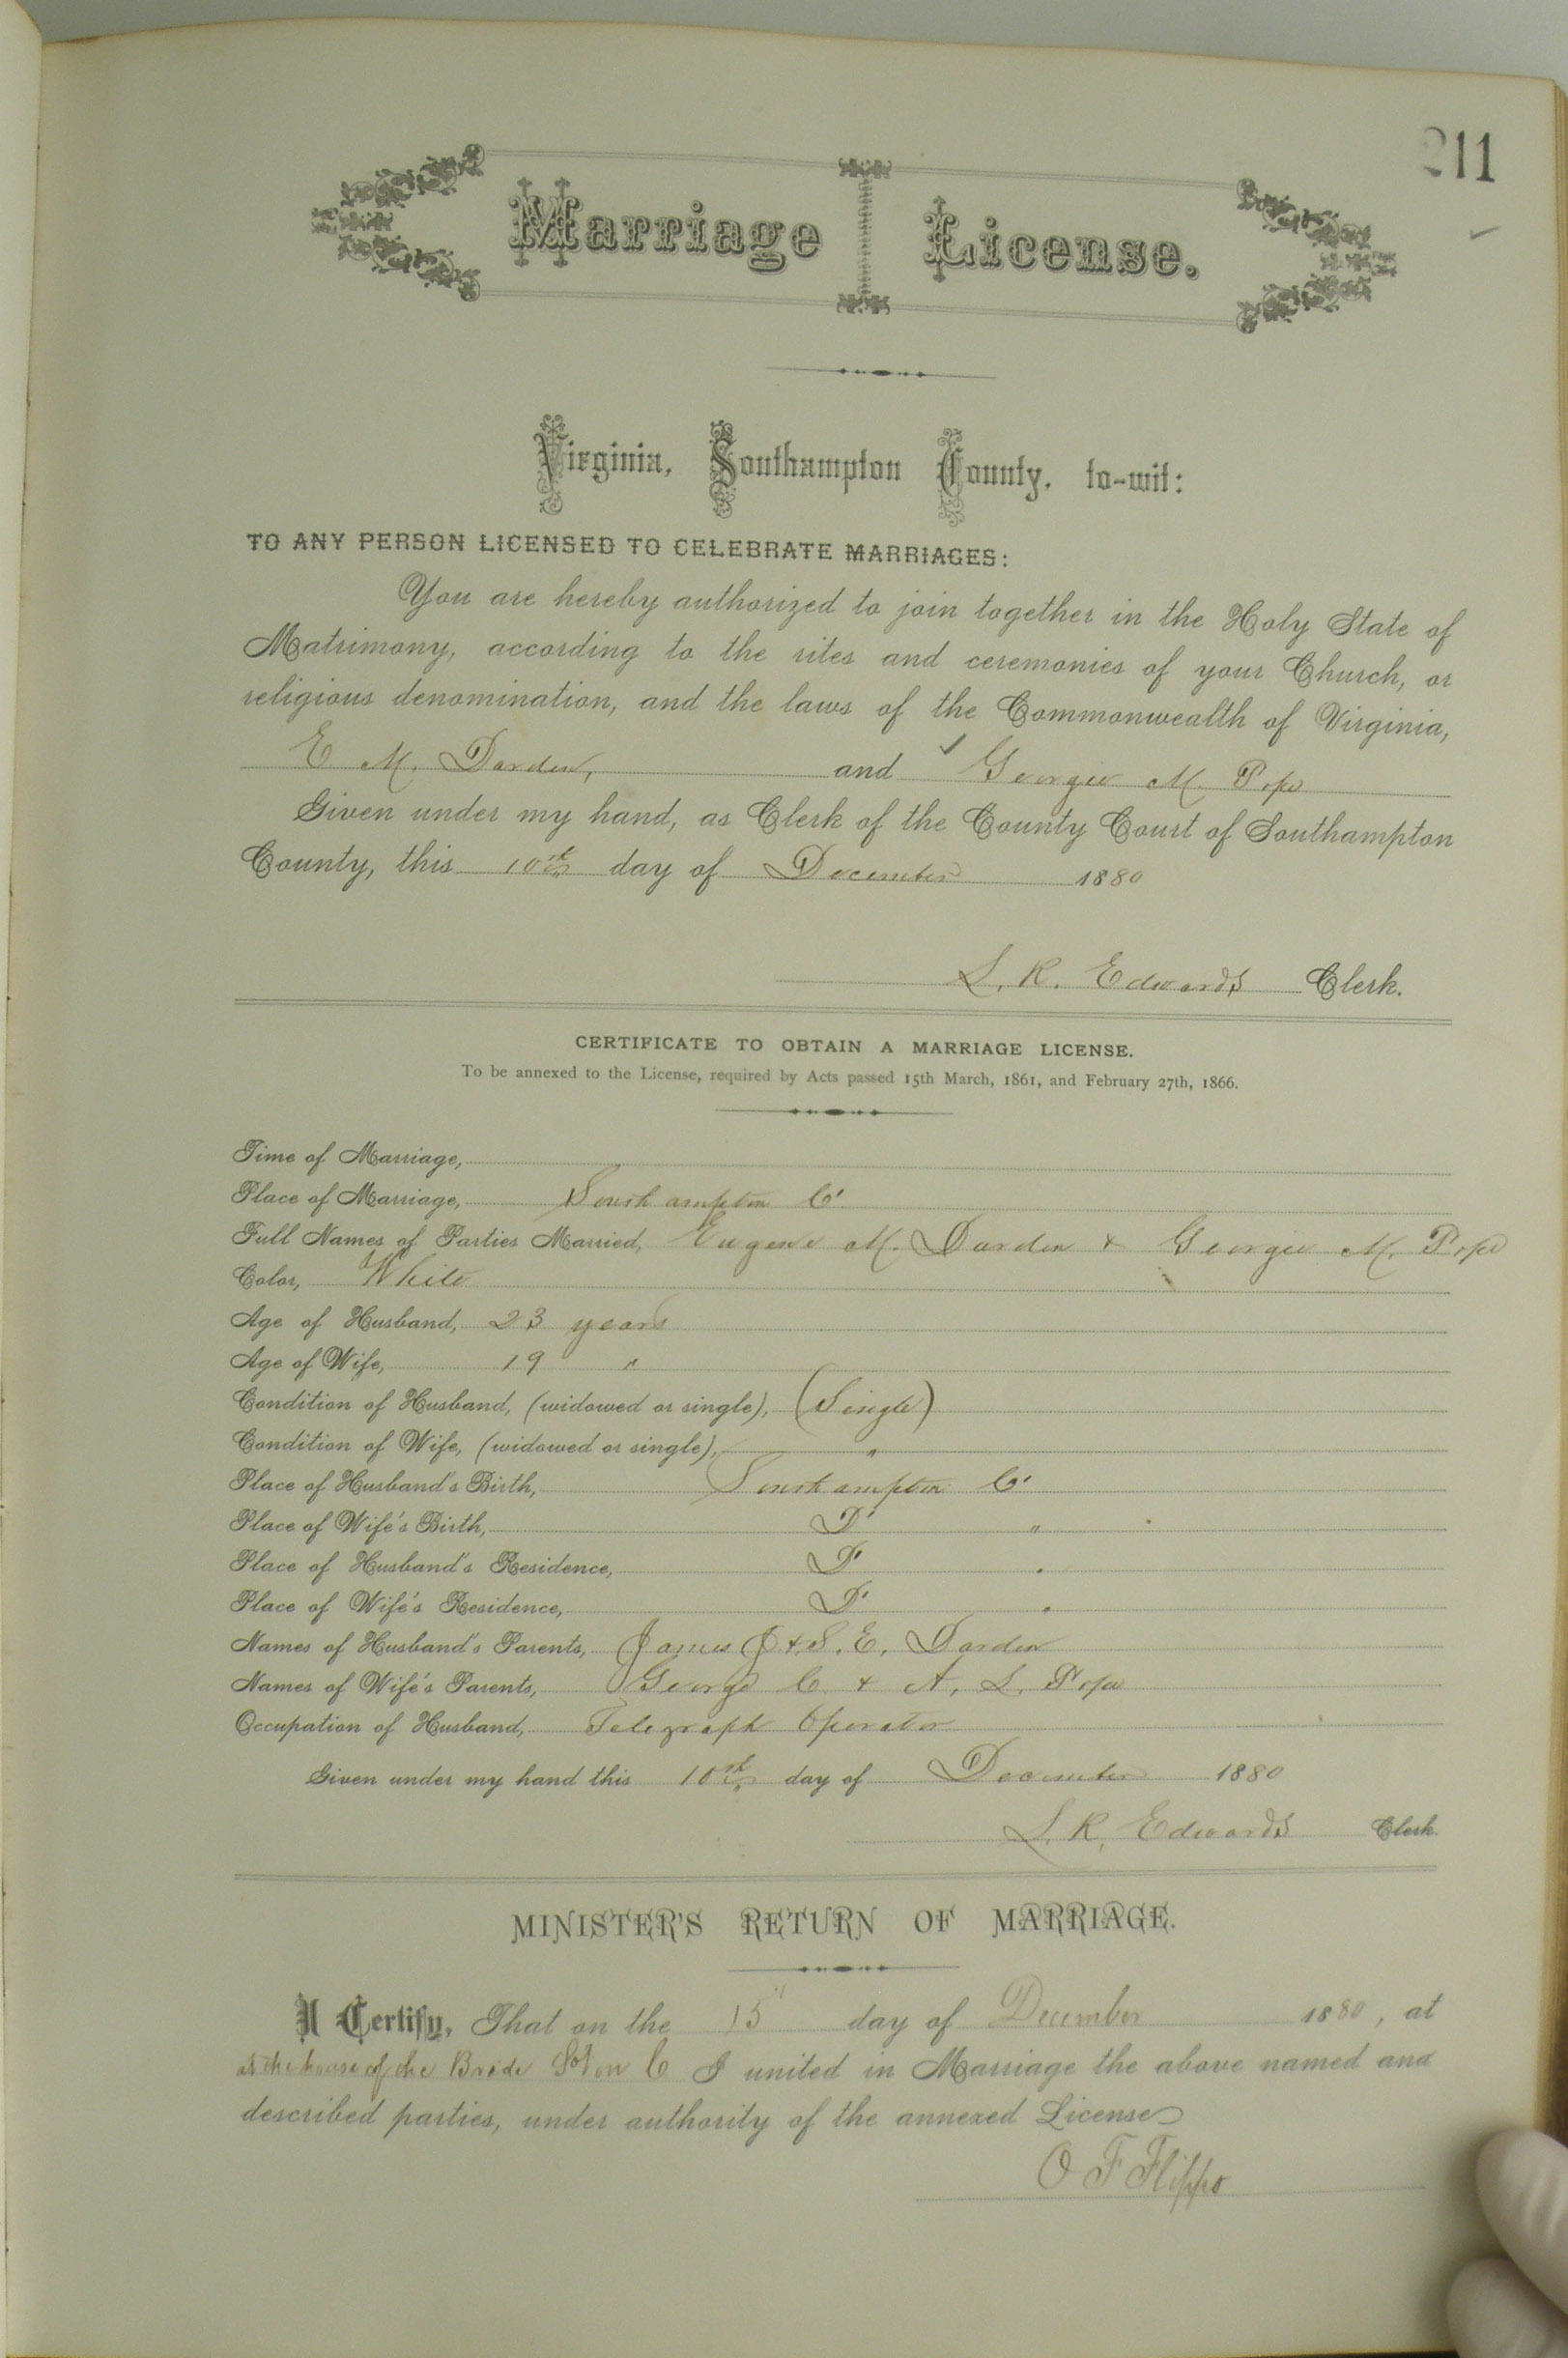 211
Marriage License.
Virginia, Southampton County, to-wit:
TO ANY PERSON LICENSED TO CELEBRATE MARRIAGES:
You are hereby authorized to join together in the Holy State of
Matrimony, according to the rites and ceremonies of your Church, or
religious denomination, and the laws of the Commonwealth of Virginia,
E M. Darden, and Georgie M. Pope
Given under my hand, as Clerk of the County Court of Southampton
County, this 10th day of December 1880
L. R. Edwards Clerk.
CERTIFICATE TO OBTAIN A MARRIAGE LICENSE.
To be annexed to the License, required by Acts passed 15th March, 1861, and February 27th, 1866.
Time of Marriage,
Place of Marriage, Southampton Co
Full Names of Parties Married, Eugene M. Darden & Georgie M. Pope
Color, White
Age of Husband, 23 years
Age of Wife, 19 "
Condition of Husband, (widowed or single), (Single)
Condition of Wife, (widowed or single), "
Place of Husband's Birth, Southampton Co
Place of Wife's Birth, Do "
Place of Husband's Residence, Do "
Place of Wife's Residence, Do "
Names of Husband's Parents, James J & S. E. Darden
Names of Wife's Parents, George C. & A. L. Pope
Occupation of Husband, Telegraph Operator
Given under my hand this 10th day of December 1880
L. R. Edwards Clerk.
MINISTER'S RETURN OF MARRIAGE.
I Certify, That on the 15" day of December 1880, at
at the house of the Bride Soton C I united in Marriage the above named and
described parties, under authority of the annexed License
O F Flippo